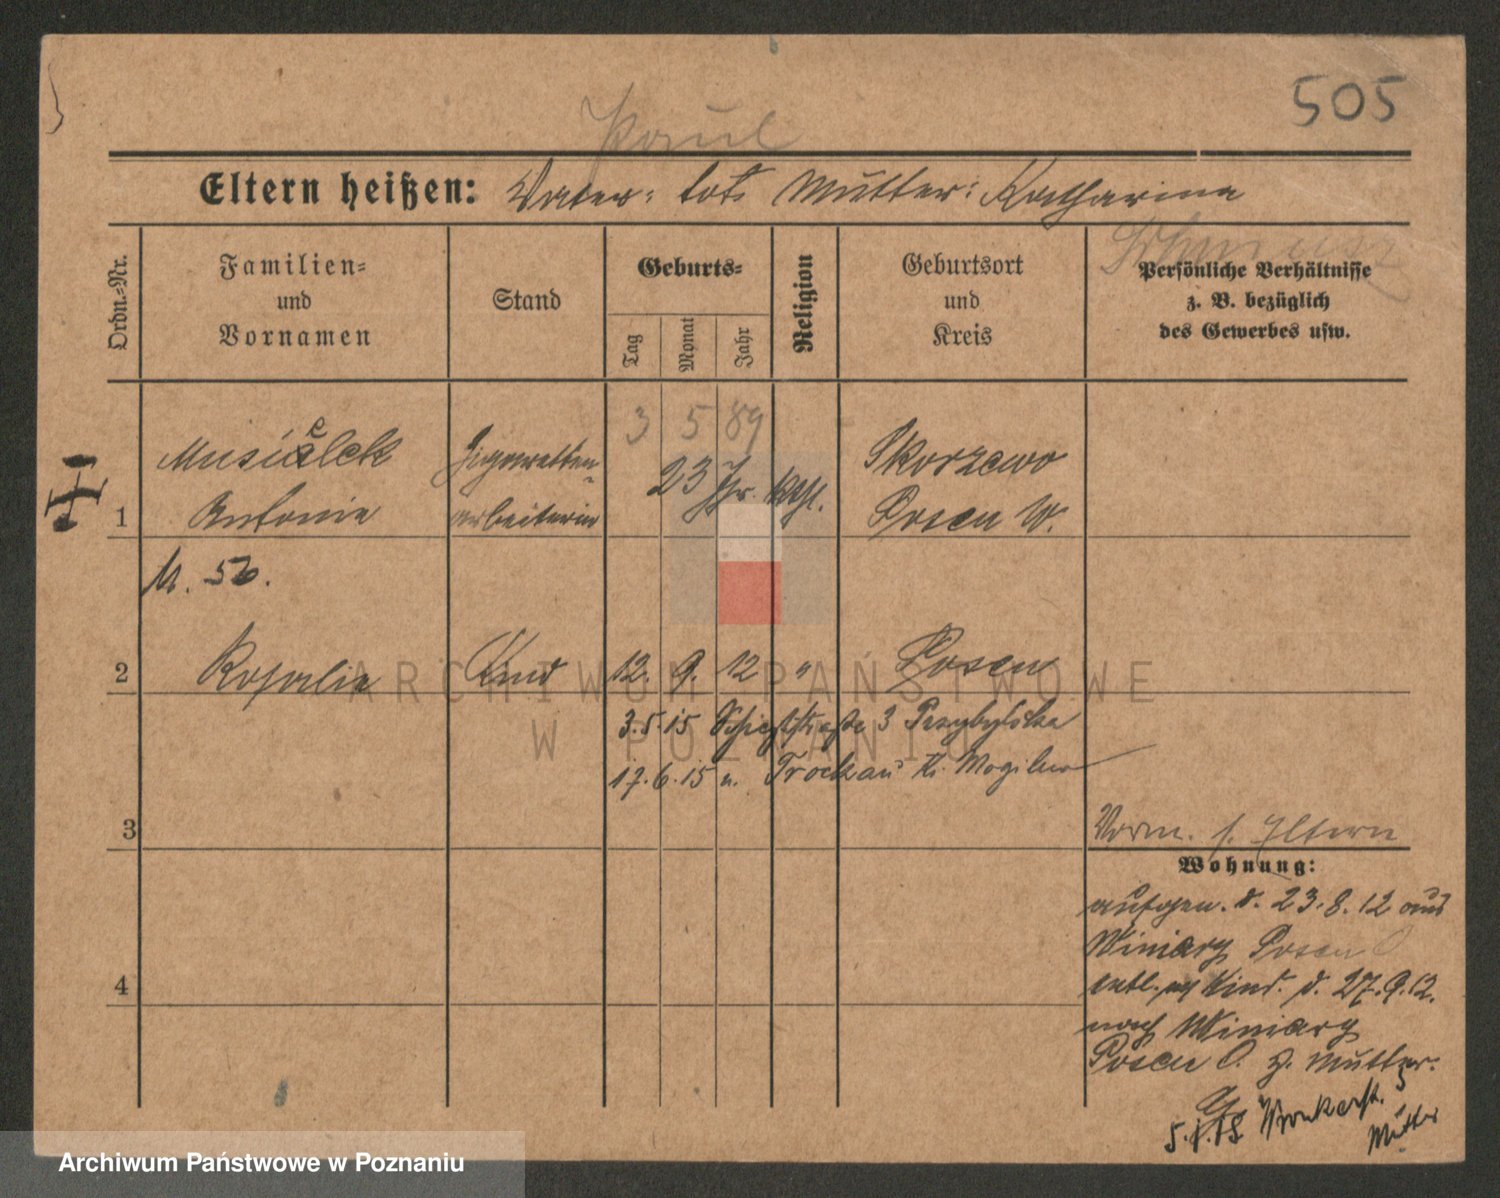 505
Paul
Eltern heißen: Vater: tot. Mutter: Katharina
Ordn.-Nr.
Familien-
und
Vornamen
Stand
Geburts-
Tag
Monat
Jahr
Religion
Geburtsort
und
Kreis
Persönliche Verhältnisse
z. B. bezüglich
des Gewerbes usw.
3 5 89
Musialek
e
Zigaretten-
23 Jhr. kath.
Skorzewo
1
Antonie
arbeiterin
Posen W.
M. 56.
2 Rosalie Kind 12. 9. 12 " Posen
3.5.15 Schießstraße 3 Przybylska
17.6.15 n. Trockau Kr. Mogilno
3
Vorm. s. Eltern
Wohnung:
aufgen. d. 23.8.12 aus
Winiary Posen O
4
entl. m/ Kind. d. 27.9.12.
nach Winiary
Posen O. z. Mutter.
Mutter
ARCHIWUM PAŃSTWOWE
W POZNANIU
Archiwum Państwowe w Poznaniu